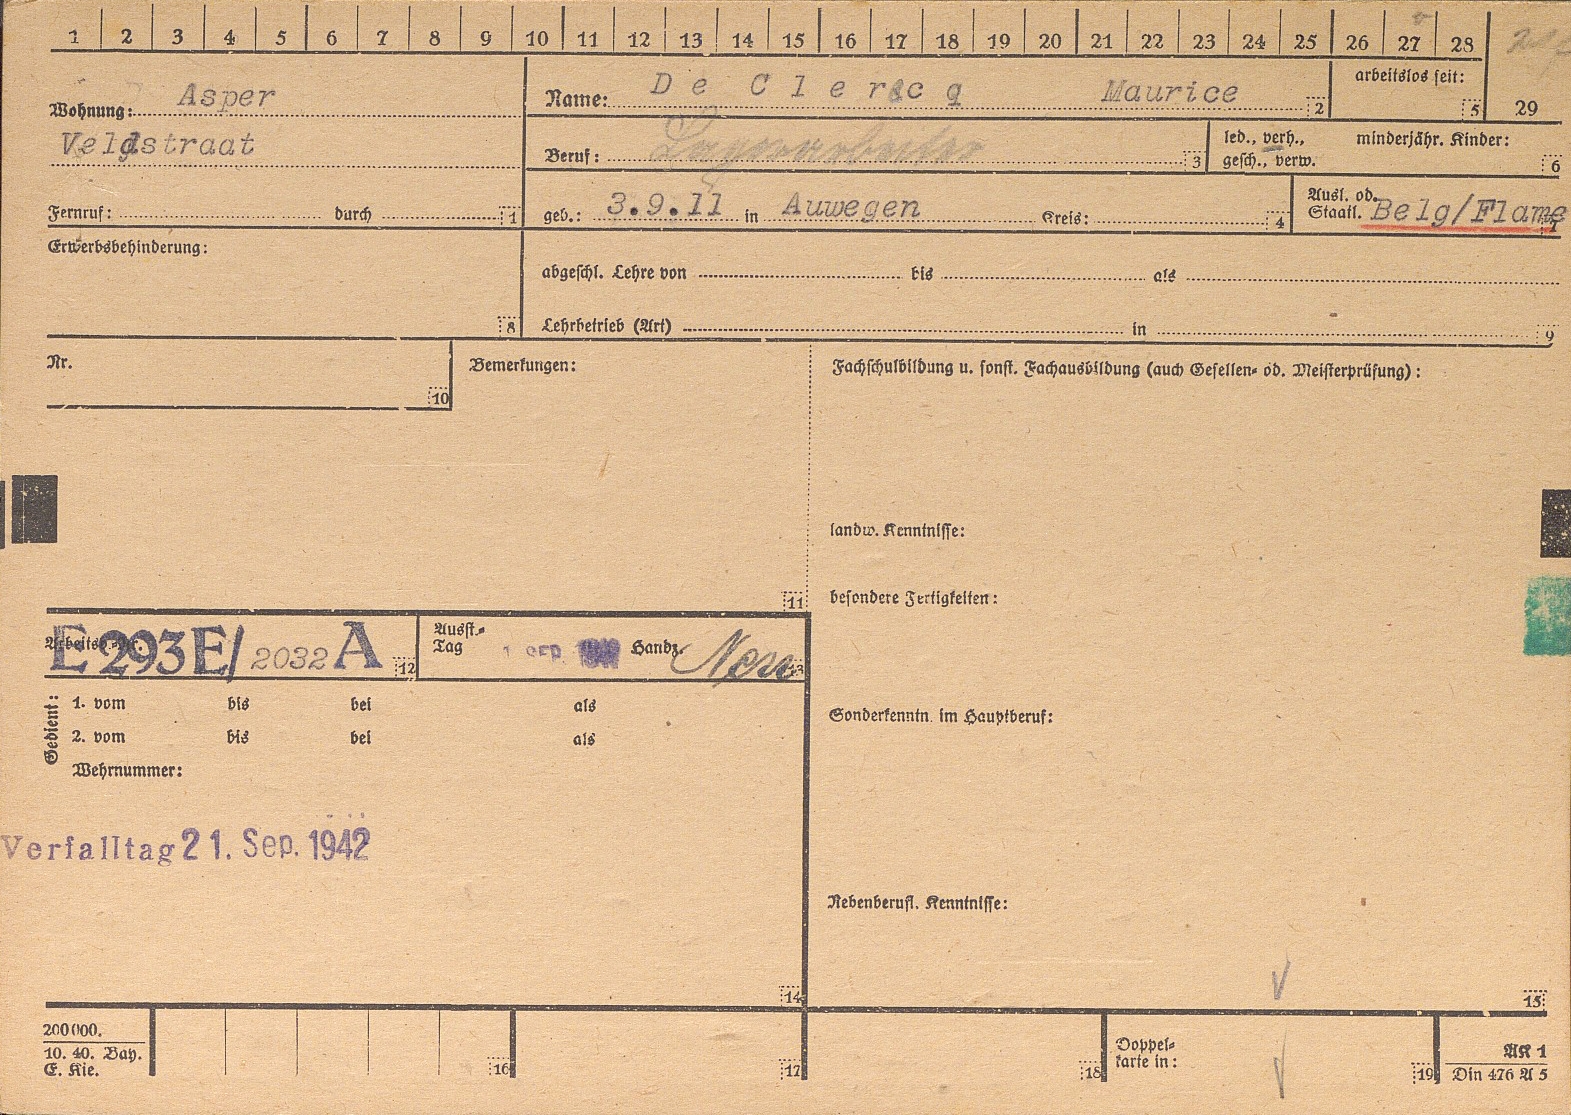 1 2 3 4 5 6 7 8 9 10 11 12 13 14 15 16 17 18 19 20 21 22 23 24 25 26 27 28
Wohnung: Asper
Veldstraat
Fernruf: durch 1
Name: De Clercq Maurice 2
arbeitslos seit: 5
29
Beruf: Lagerarbeiter 3
led., verh., gesch., verw.
minderjähr. Kinder: 6
geb.: 3.9.11 in Auwegen Kreis: 4
Ausl. od. Staatl. Belg/Flame 7
Erwerbsbehinderung:
8
abgeschl. Lehre von bis als
Lehrbetrieb (Art) in 9
Nr.
10
Bemerkungen:
11
Fachschulbildung u. sonst. Fachausbildung (auch Gesellen- od. Meisterprüfung):
landw. Kenntnisse:
besondere Fertigkeiten:
Arbeitsb.-Nr. E 293E/ 2032 A 12
Ausst.-Tag 1 SEP. Handz. 13
Gedient:
1. vom bis bei als
2. vom bis bei als
Wehrnummer:
Verfalltag 21. Sep. 1942
14
Sonderkenntn. im Hauptberuf:
Nebenberufl. Kenntnisse:
15
200000.
10. 40. Bay.
E. Kie.
16
17
18
Doppel-
karte in:
19
AK 1
Din 476 A 5